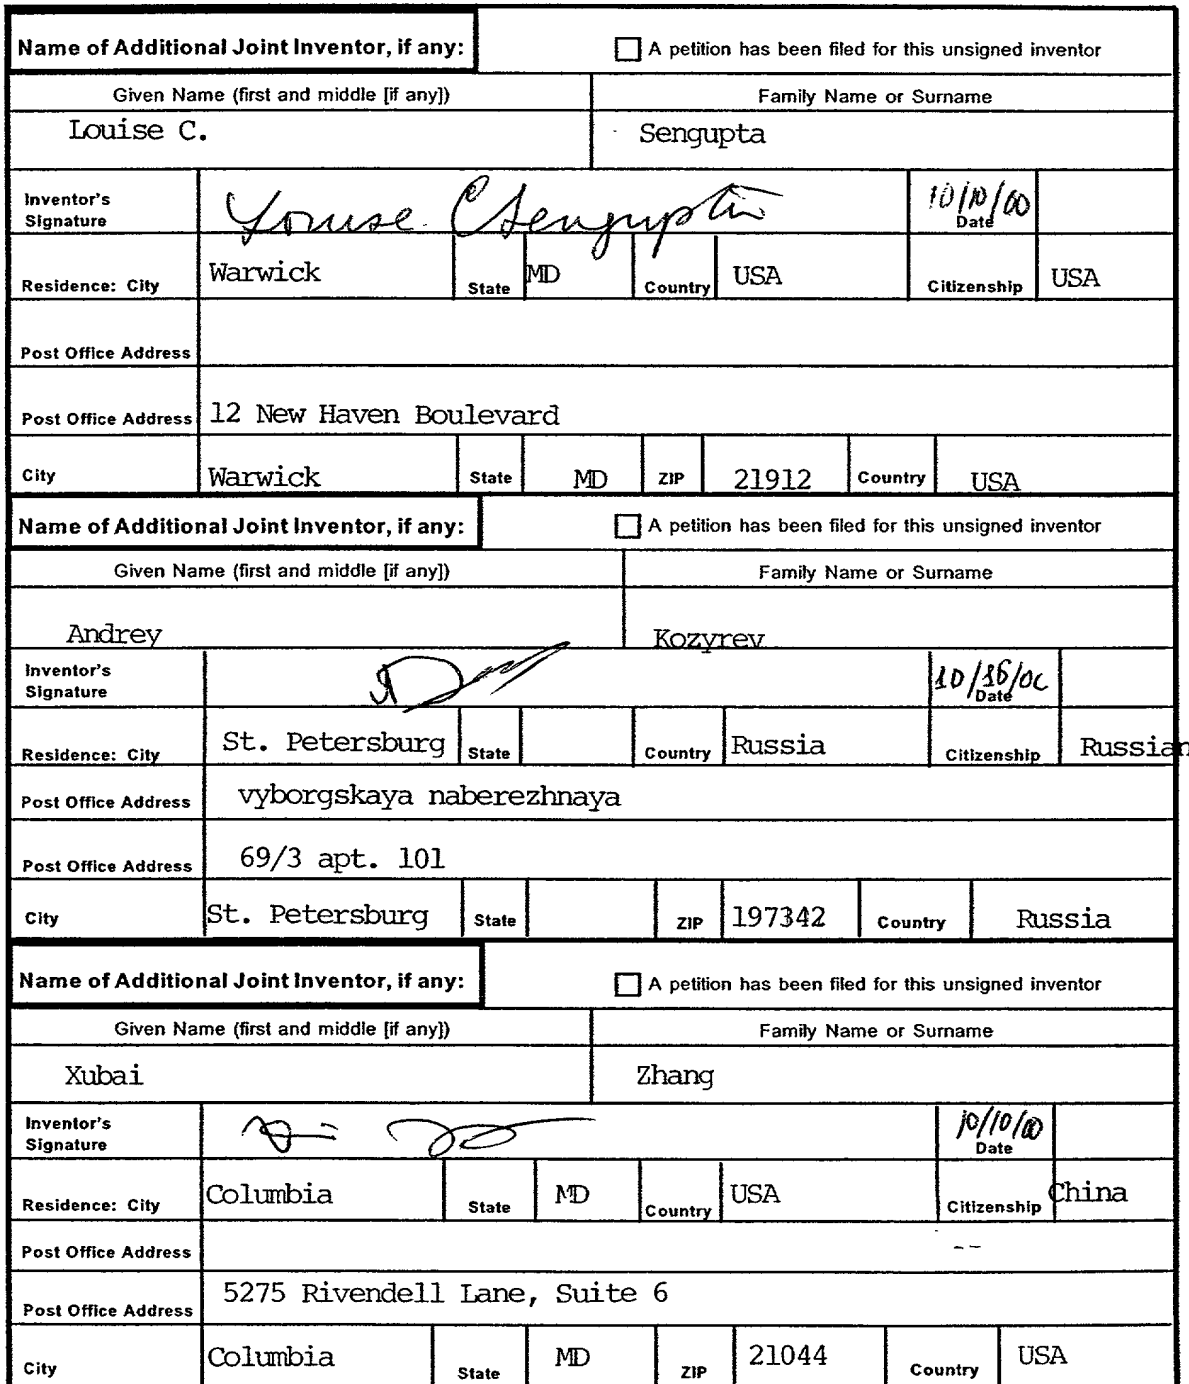 Name of Additional Joint Inventor, if any: A petition has been filed for this unsigned inventor
Given Name (first and middle [if any]) Family Name or Surname
Louise C. Sengupta
Inventor's Signature Louise C Sengupta 10/10/00 Date
Residence: City Warwick State MD Country USA Citizenship USA
Post Office Address
Post Office Address 12 New Haven Boulevard
City Warwick State MD ZIP 21912 Country USA
Name of Additional Joint Inventor, if any: A petition has been filed for this unsigned inventor
Given Name (first and middle [if any]) Family Name or Surname
Andrey Kozyrev
Inventor's Signature Date
Residence: City St. Petersburg State Country Russia Citizenship Russian
Post Office Address vyborgskaya naberezhnaya
Post Office Address 69/3 apt. 101
City St. Petersburg State ZIP 197342 Country Russia
Name of Additional Joint Inventor, if any: A petition has been filed for this unsigned inventor
Given Name (first and middle [if any]) Family Name or Surname
Xubai Zhang
Inventor's Signature 10/10/00 Date
Residence: City Columbia State MD Country USA Citizenship China
Post Office Address --
Post Office Address 5275 Rivendell Lane, Suite 6
City Columbia State MD ZIP 21044 Country USA